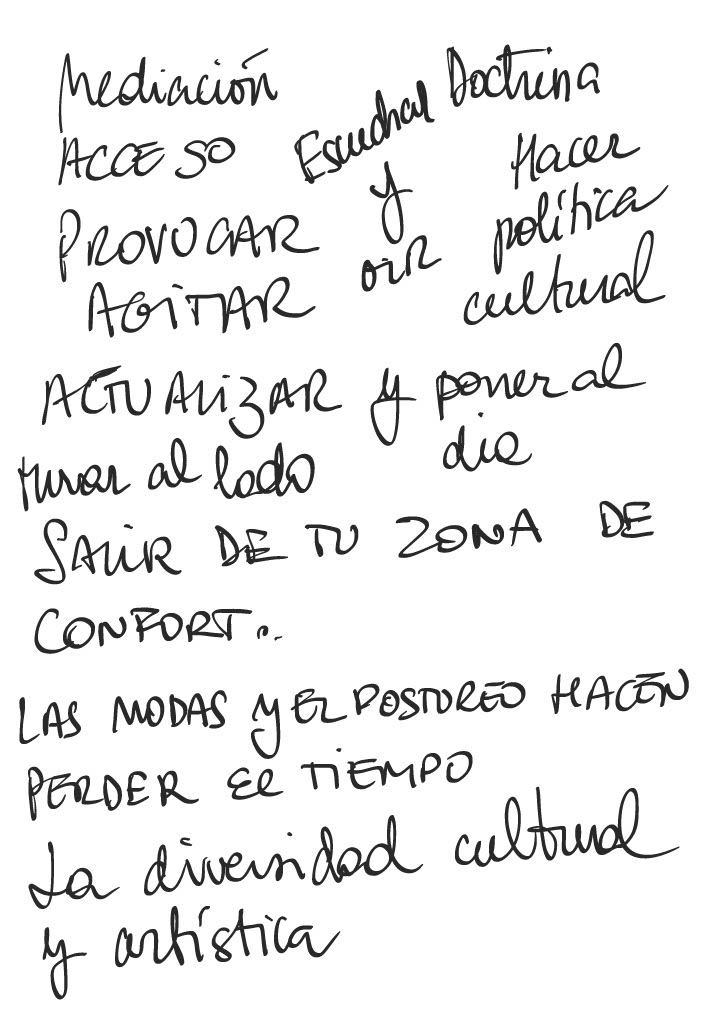 Mediación
ACCESO
PROVOCAR
AGITAR
Escuchar
y
OIR
Doctrina
Hacer
política
cultural
ACTUALIZAR y poner al
día
mirar al lado
SALIR DE TU ZONA DE
CONFORT...
LAS MODAS Y EL POSTUREO HACEN
PERDER EL TIEMPO
La diversidad cultural
y artística